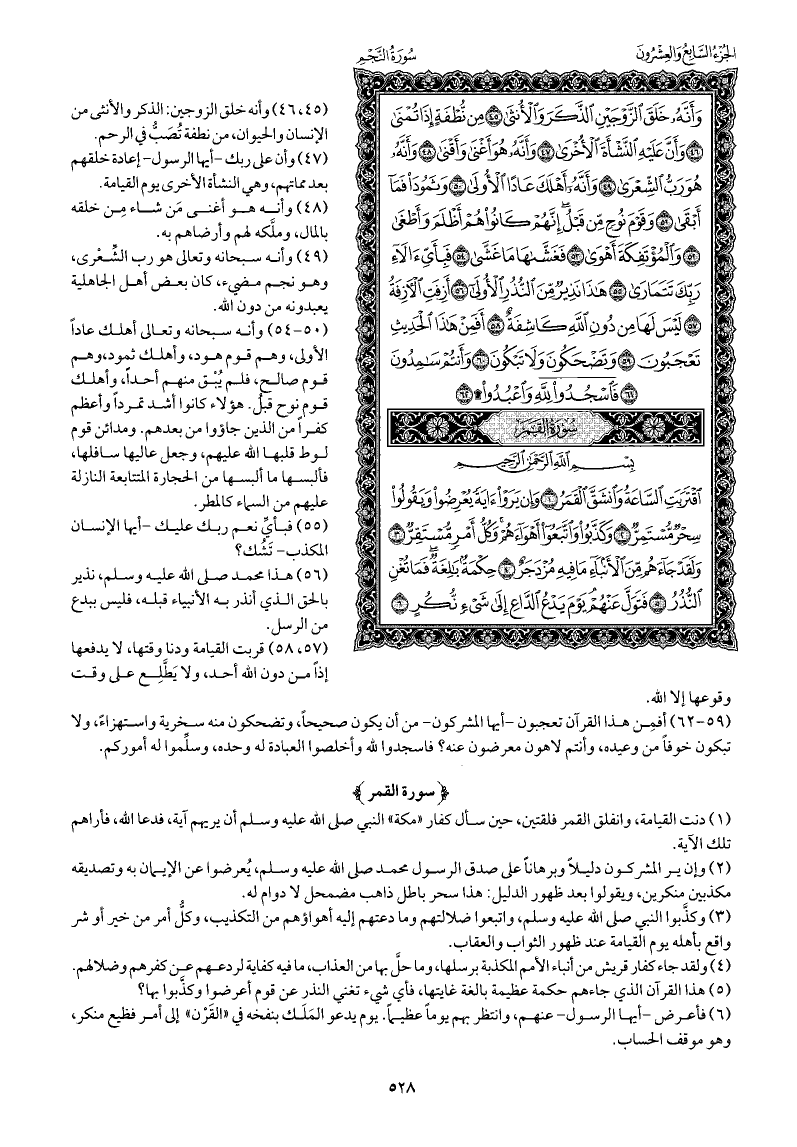 الجزء السابع والعشرون
سورة النجم
وَأَنَّهُۥ خَلَقَ ٱلزَّوْجَيْنِ ٱلذَّكَرَ وَٱلْأُنثَىٰ ۝٤٥ مِن نُّطْفَةٍ إِذَا تُمْنَىٰ
۝٤٦ وَأَنَّ عَلَيْهِ ٱلنَّشْأَةَ ٱلْأُخْرَىٰ ۝٤٧ وَأَنَّهُۥ هُوَ أَغْنَىٰ وَأَقْنَىٰ ۝٤٨ وَأَنَّهُۥ
هُوَ رَبُّ ٱلشِّعْرَىٰ ۝٤٩ وَأَنَّهُۥٓ أَهْلَكَ عَادًا ٱلْأُولَىٰ ۝٥٠ وَثَمُودَا۟ فَمَآ
أَبْقَىٰ ۝٥١ وَقَوْمَ نُوحٍ مِّن قَبْلُ إِنَّهُمْ كَانُوا۟ هُمْ أَظْلَمَ وَأَطْغَىٰ
۝٥٢ وَٱلْمُؤْتَفِكَةَ أَهْوَىٰ ۝٥٣ فَغَشَّىٰهَا مَا غَشَّىٰ ۝٥٤ فَبِأَىِّ ءَالَآءِ
رَبِّكَ تَتَمَارَىٰ ۝٥٥ هَٰذَا نَذِيرٌ مِّنَ ٱلنُّذُرِ ٱلْأُولَىٰٓ ۝٥٦ أَزِفَتِ ٱلْءَازِفَةُ
۝٥٧ لَيْسَ لَهَا مِن دُونِ ٱللَّهِ كَاشِفَةٌ ۝٥٨ أَفَمِنْ هَٰذَا ٱلْحَدِيثِ
تَعْجَبُونَ ۝٥٩ وَتَضْحَكُونَ وَلَا تَبْكُونَ ۝٦٠ وَأَنتُمْ سَٰمِدُونَ
۝٦١ فَٱسْجُدُوا۟ لِلَّهِ وَٱعْبُدُوا۟ ۩ ۝٦٢
سورة القمر
بِسْمِ ٱللَّهِ ٱلرَّحْمَٰنِ ٱلرَّحِيمِ
ٱقْتَرَبَتِ ٱلسَّاعَةُ وَٱنشَقَّ ٱلْقَمَرُ ۝١ وَإِن يَرَوْا۟ ءَايَةً يُعْرِضُوا۟ وَيَقُولُوا۟
سِحْرٌ مُّسْتَمِرٌّ ۝٢ وَكَذَّبُوا۟ وَٱتَّبَعُوٓا۟ أَهْوَآءَهُمْ وَكُلُّ أَمْرٍ مُّسْتَقِرٌّ ۝٣
وَلَقَدْ جَآءَهُم مِّنَ ٱلْأَنۢبَآءِ مَا فِيهِ مُزْدَجَرٌ ۝٤ حِكْمَةٌۢ بَٰلِغَةٌ فَمَا تُغْنِ
ٱلنُّذُرُ ۝٥ فَتَوَلَّ عَنْهُمْ يَوْمَ يَدْعُ ٱلدَّاعِ إِلَىٰ شَىْءٍ نُّكُرٍ ۝٦
(٤٥، ٤٦) وأنه خلق الزوجين: الذكر والأنثى من
الإنسان والحيوان، من نطفة تُصَبُّ في الرحم.
(٤٧) وأن على ربك -أيها الرسول- إعادة خلقهم
بعد مماتهم، وهي النشأة الأخرى يوم القيامة.
(٤٨) وأنه هو أغنى مَن شاء مِن خلقه
بالمال، وملَّكه لهم وأرضاهم به.
(٤٩) وأنه سبحانه وتعالى هو رب الشِّعْرى،
وهو نجم مضيء، كان بعض أهل الجاهلية
يعبدونه من دون الله.
(٥٠-٥٤) وأنه سبحانه وتعالى أهلك عاداً
الأولى، وهم قوم هود، وأهلك ثمود، وهم
قوم صالح، فلم يُبْق منهم أحداً، وأهلك
قوم نوح قبلُ. هؤلاء كانوا أشد تمرداً وأعظم
كفراً من الذين جاؤوا من بعدهم. ومدائن قوم
لوط قلبها الله عليهم، وجعل عاليها سافلها،
فألبسها ما ألبسها من الحجارة المتتابعة النازلة
عليهم من السماء كالمطر.
(٥٥) فبأيِّ نعم ربك عليك -أيها الإنسان
المكذب- تَشُك؟
(٥٦) هذا محمد صلى الله عليه وسلم، نذير
بالحق الذي أنذر به الأنبياء قبله، فليس ببدع
من الرسل.
(٥٧، ٥٨) قربت القيامة ودنا وقتها، لا يدفعها
إذاً من دون الله أحد، ولا يَطَّلِع على وقت
وقوعها إلا الله.
(٥٩-٦٢) أفمِن هذا القرآن تعجبون -أيها المشركون- من أن يكون صحيحاً، وتضحكون منه سخرية واستهزاءً، ولا
تبكون خوفاً من وعيده، وأنتم لاهون معرضون عنه؟ فاسجدوا لله وأخلصوا العبادة له وحده، وسلِّموا له أموركم.
﴿سورة القمر﴾
(١) دنت القيامة، وانفلق القمر فلقتين، حين سأل كفار «مكة» النبي صلى الله عليه وسلم أن يريهم آية، فدعا الله، فأراهم
تلك الآية.
(٢) وإن ير المشركون دليلاً وبرهاناً على صدق الرسول محمد صلى الله عليه وسلم، يُعرضوا عن الإيمان به وتصديقه
مكذبين منكرين، ويقولوا بعد ظهور الدليل: هذا سحر باطل ذاهب مضمحل لا دوام له.
(٣) وكذَّبوا النبي صلى الله عليه وسلم، واتبعوا ضلالتهم وما دعتهم إليه أهواؤهم من التكذيب، وكلُّ أمر من خير أو شر
واقع بأهله يوم القيامة عند ظهور الثواب والعقاب.
(٤) ولقد جاء كفار قريش من أنباء الأمم المكذبة برسلها، وما حلَّ بها من العذاب، ما فيه كفاية لردعهم عن كفرهم وضلالهم.
(٥) هذا القرآن الذي جاءهم حكمة عظيمة بالغة غايتها، فأي شيء تغني النذر عن قوم أعرضوا وكذَّبوا بها؟
(٦) فأعرض -أيها الرسول- عنهم، وانتظر بهم يوماً عظيماً. يوم يدعو المَلَك بنفخه في «القَرْن» إلى أمر فظيع منكر،
وهو موقف الحساب.
٥٢٨